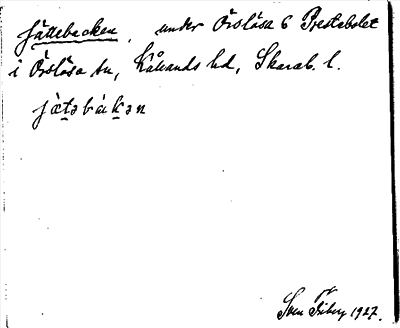 Jättebacken, under Örslösa 6 Prestabolet
i Örslösa sn, Kållands hd, Skarab. l.
jä̀təbàkən
Sven Friberg 1927.